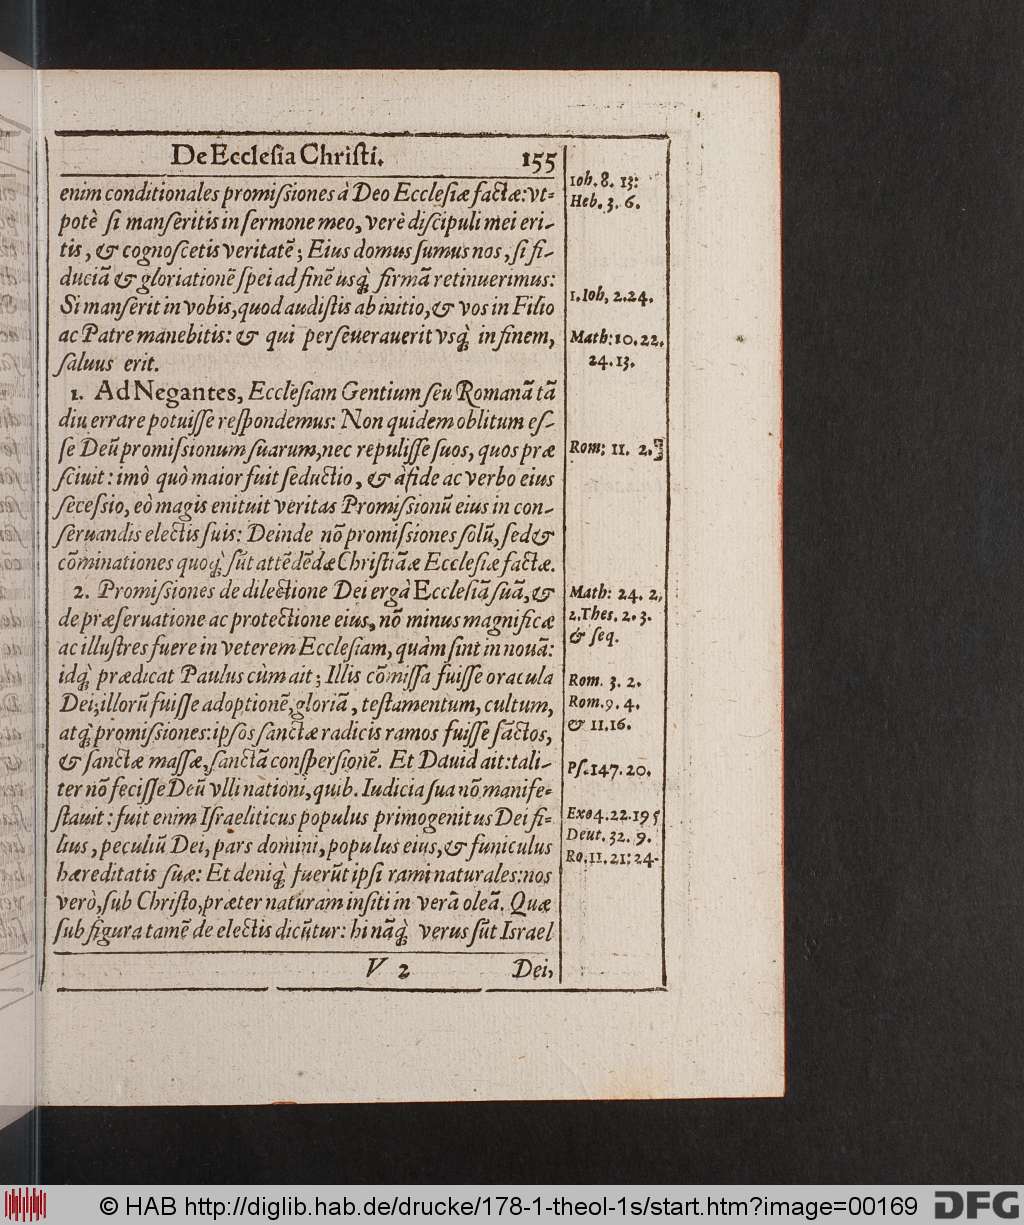 De Ecclesia Christi. 155
enim conditionales promissiones à Deo Ecclesiæ factæ: vt=
potè si manseritis in sermone meo, verè discipuli mei eri-
tis, & cognoscetis veritatē; Eius domus sumus nos, si fi-
duciā & gloriationē spei ad finē usq; firmā retinuerimus:
Si manserit in vobis, quod audistis ab initio, & vos in Filio
ac Patre manebitis: & qui perseuerauerit vsq; in finem,
saluus erit.
1. Ad Negantes, Ecclesiam Gentium seu Romanā tā
diu errare potuisse respondemus: Non quidem oblitum es-
se Deū promissionum suarum, nec repulisse suos, quos præ
sciuit: imò quò maior fuit seductio, & à fide ac verbo eius
secessio, eò magis enituit veritas Promissionū eius in con-
seruandis electis suis: Deinde nō promissiones solū, sed &
cōminationes quoq; sūt attēdēdæ Christiāæ Ecclesiæ factæ.
2. Promissiones de dilectione Dei ergà Ecclesiā suā, &
de præseruatione ac protectione eius, nō minus magnificæ
ac illustres fuere in veterem Ecclesiam, quàm sint in nouā:
idq; prædicat Paulus cùm ait; Illis cōmissa fuisse oracula
Dei; illorū fuisse adoptionē, gloriā, testamentum, cultum,
atq; promissiones: ipsos sanctæ radicis ramos fuisse sāctos,
& sanctæ massæ, sanctā conspersionē. Et Dauid ait: tali-
ter nō fecisse Deū vlli nationi, quib. Iudicia sua nō manife=
stauit: fuit enim Israeliticus populus primogenitus Dei fi-
lius, peculiū Dei, pars domini, populus eius, & funiculus
hæreditatis suæ: Et deniq; fuerūt ipsi rami naturales: nos
verò, sub Christo, præter naturam insiti in verā oleā. Quæ
sub figura tamē de electis dicūtur: hi nāq; verus sūt Israel
V 2 Dei,
Ioh. 8. 13:
Heb. 3. 6.
1. Ioh, 2. 24.
Math: 10. 22.
24. 13.
Rom; 11. 2.
Math: 24. 2,
2. Thes. 2. 3.
& seq.
Rom. 3. 2.
Rom. 9. 4.
& 11. 16.
Ps. 147. 20.
Exo 4. 22. 19 5
Deut. 32. 9.
Ro. 11. 21: 24.
© HAB http://diglib.hab.de/drucke/178-1-theol-1s/start.htm?image=00169 DFG